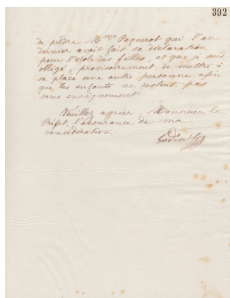 392
de perdre Mme Paquerat qui l'an
dernier avait fait sa déclaration
pour l'école des filles, et que je suis
obligé, provisoirement, de mettre à
sa place une autre personne afin
que les enfants ne restent pas
sans enseignement.
Veuillez agréer, Monsieur le
Préfet, l'assurance de ma
considération.
Godin